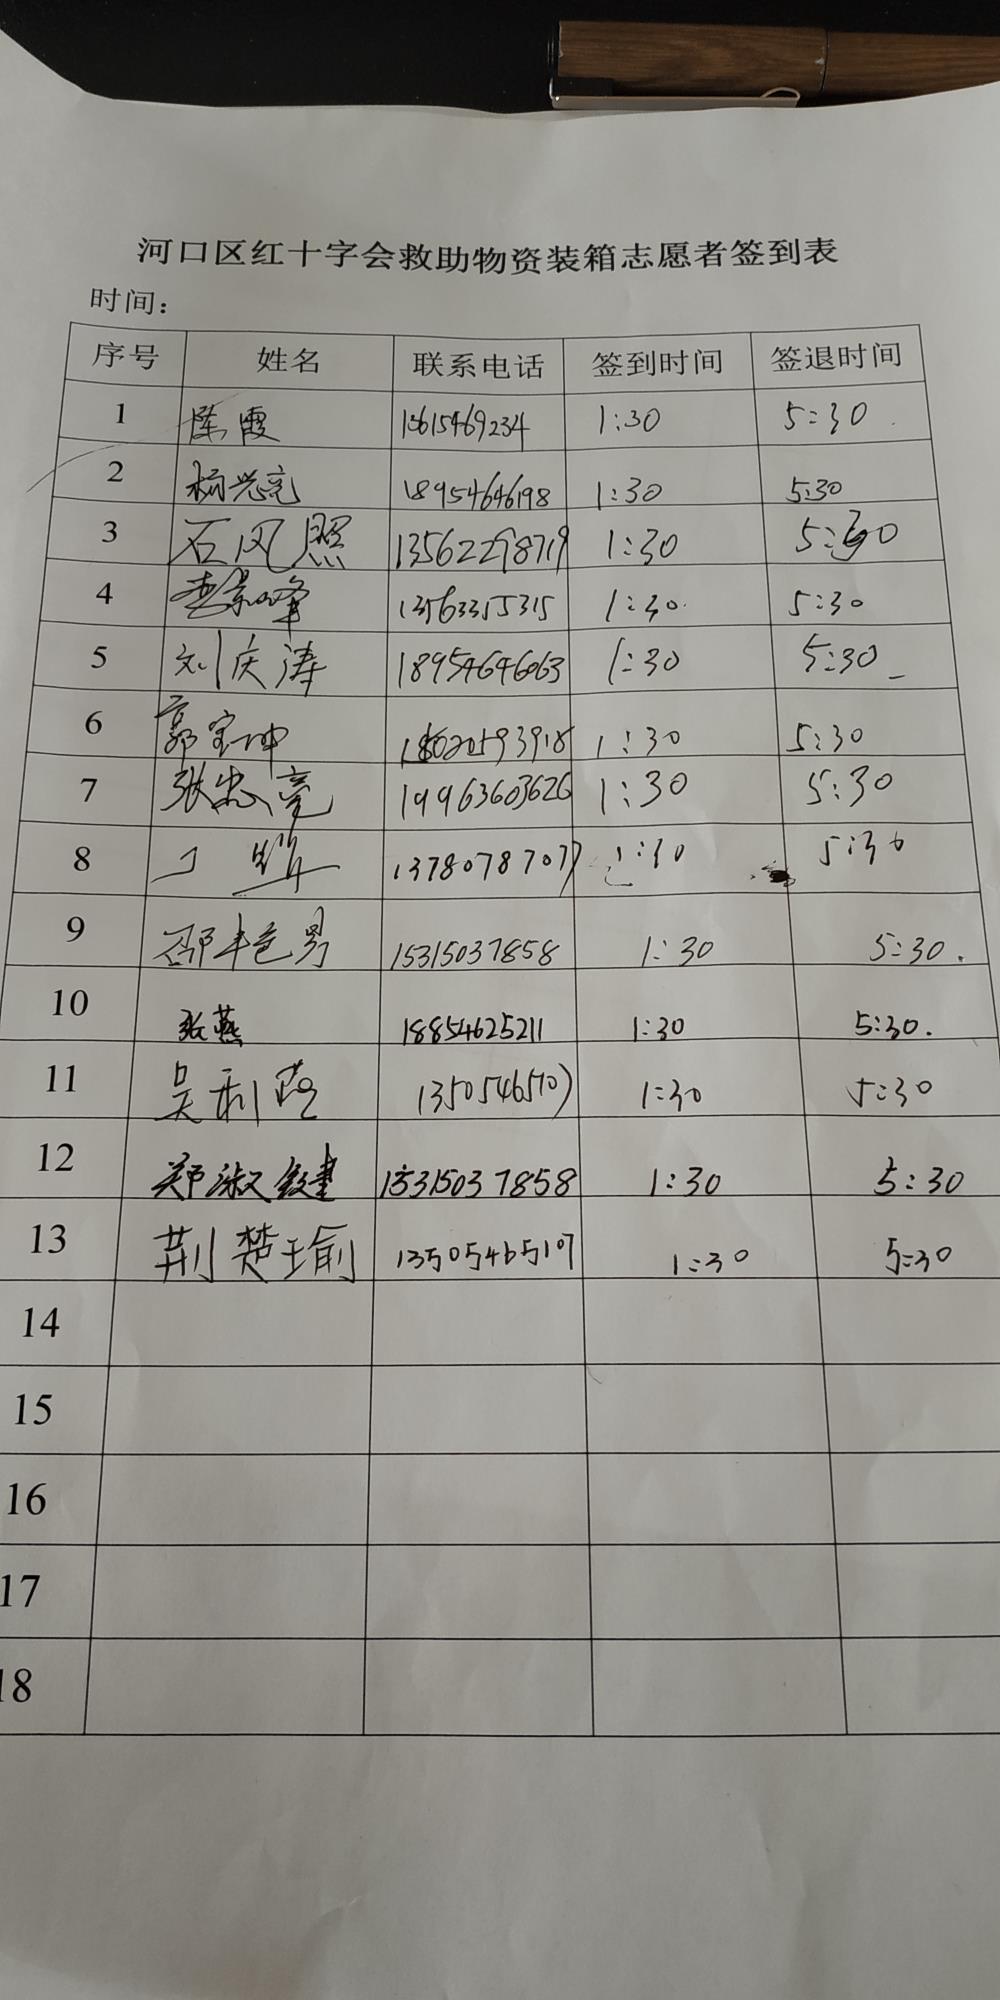 河口区红十字会救助物资装箱志愿者签到表
时间：
序号 姓名 联系电话 签到时间 签退时间
1 陈霞 13615469234 1:30 5:30
2 杨兴亮 18954646198 1:30 5:30
3 石风照 13562298719 1:30 5:30
4 李景峰 13563355315 1:30 5:30
5 刘庆涛 18954646063 1:30 5:30
6 郭宝坤 1:30 5:30
7 张忠亮 19963603626 1:30 5:30
8 13780787077 1:30 5:30
9 15315037858 1:30 5:30.
10 张燕 18854625211 1:30 5:30.
11 吴利 13505465107 1:30 5:30
12 郑淑 15315037858 1:30 5:30
13 荆楚瑜 13505465107 1:30 5:30
14
15
16
17
18